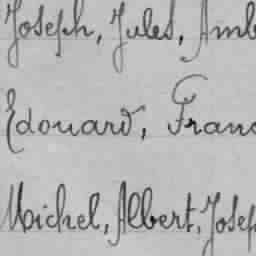 Joseph, Jules, Amb
Edouard, Franc
Michel, Albert, Josep